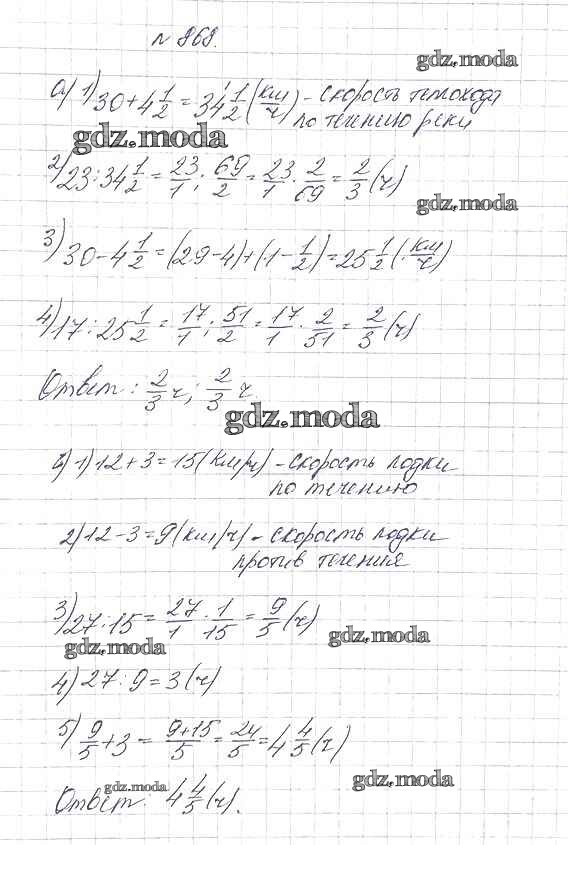 № 868.
gdz.moda
а) 1) 30 + 4 1/2 = 34 1/2 (км/ч) - скорость теплохода
по течению реки
gdz.moda
2) 23 : 34 1/2 = 23/1 : 69/2 = 23/1 · 2/69 = 2/3 (ч)
gdz.moda
3) 30 - 4 1/2 = (29 - 4) + (1 - 1/2) = 25 1/2 (км/ч)
4) 17 : 25 1/2 = 17/1 : 51/2 = 17/1 · 2/51 = 2/3 (ч)
Ответ: 2/3 ч; 2/3 ч.
gdz.moda
б) 1) 12 + 3 = 15 (км/ч) - скорость лодки
по течению
2) 12 - 3 = 9 (км/ч) - скорость лодки
против течения
3) 27 : 15 = 27/1 · 1/15 = 9/5 (ч)
gdz.moda
gdz.moda
4) 27 : 9 = 3 (ч)
5) 9/5 + 3 = (9+15)/5 = 24/5 = 4 4/5 (ч)
gdz.moda
gdz.moda
Ответ: 4 4/5 (ч).